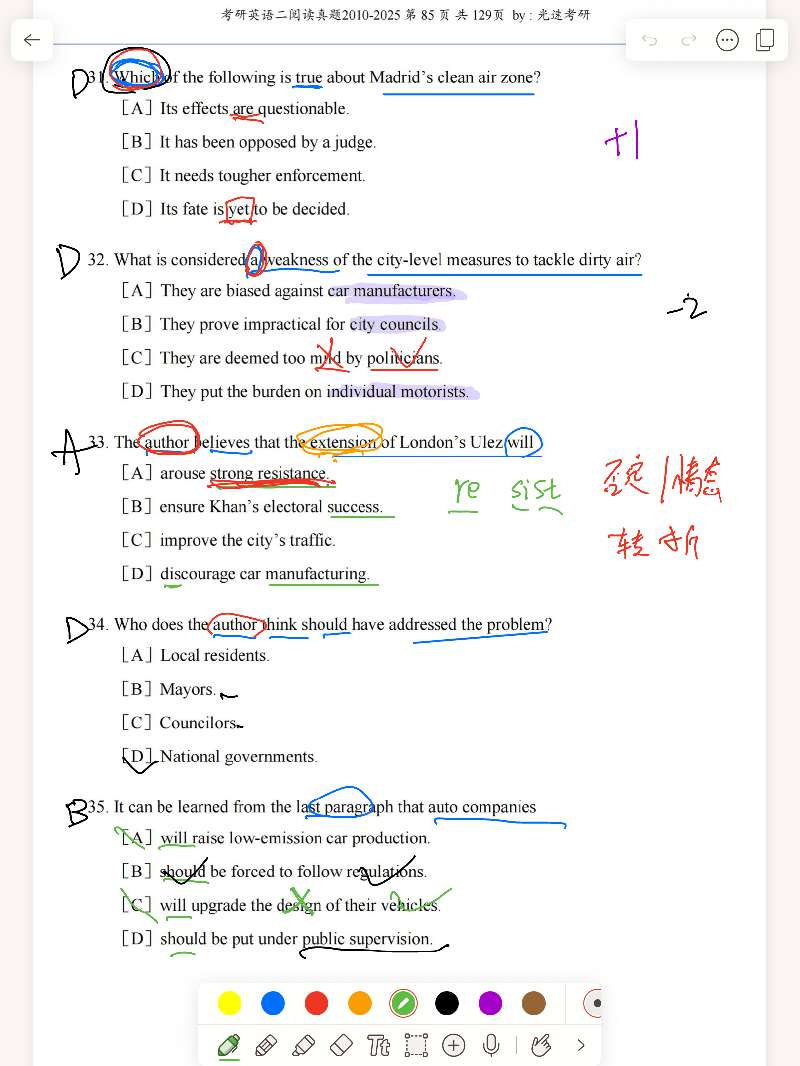 考研英语二阅读真题2010-2025 第 85 页 共 129页 by : 光速考研
D 31. Which of the following is true about Madrid's clean air zone?
[A] Its effects are questionable.
[B] It has been opposed by a judge.
+1
[C] It needs tougher enforcement.
[D] Its fate is yet to be decided.
D 32. What is considered a weakness of the city-level measures to tackle dirty air?
[A] They are biased against car manufacturers.
-2
[B] They prove impractical for city councils.
[C] They are deemed too mild by politicians.
[D] They put the burden on individual motorists.
A 33. The author believes that the extension of London's Ulez will
[A] arouse strong resistance.
re sist 否定/情态
[B] ensure Khan's electoral success.
[C] improve the city's traffic.
转折
[D] discourage car manufacturing.
D 34. Who does the author think should have addressed the problem?
[A] Local residents.
[B] Mayors.
[C] Councilors.
[D] National governments.
B 35. It can be learned from the last paragraph that auto companies
[A] will raise low-emission car production.
[B] should be forced to follow regulations.
[C] will upgrade the design of their vehicles.
[D] should be put under public supervision.
Tt